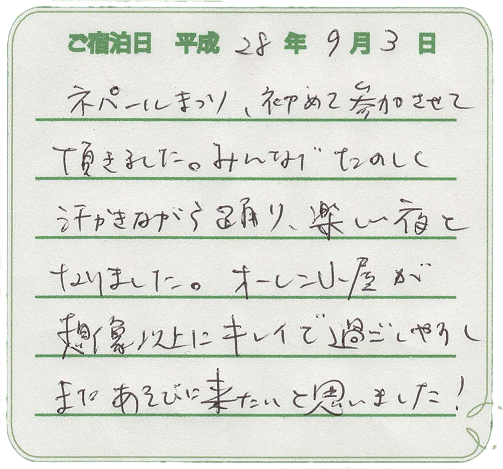 ご宿泊日 平成 28 年 9 月 3 日
ネパールまつり、初めて参加させて
頂きました。みんなで たのしく
汗かきながら踊り、楽しい夜と
なりました。 オーレン小屋が
想像以上にキレイで過ごしやすく
また あそびに来たいと思いました!